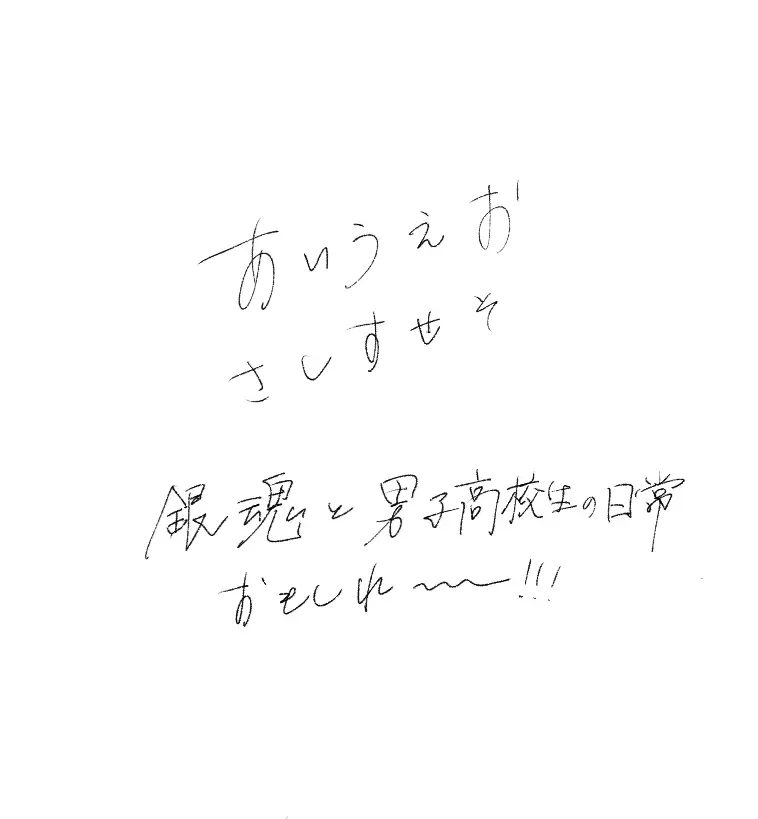 あいうえお
さしすせそ
銀魂と男子高校生の日常
おもしれ〜〜!!!